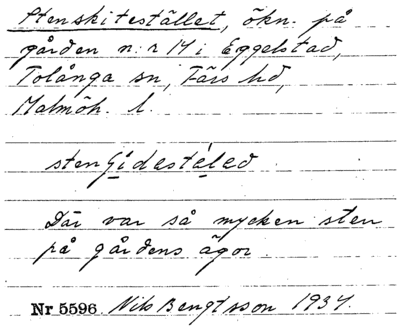 Stenskitestället, ökn. på
gården n:r 14 i Eggelstad,
Tolånga sn, Färs hd,
Malmöh. l.
Där var så mycken sten
på gårdens ägor.
Nr 5596 Nils Bengtsson 1934.